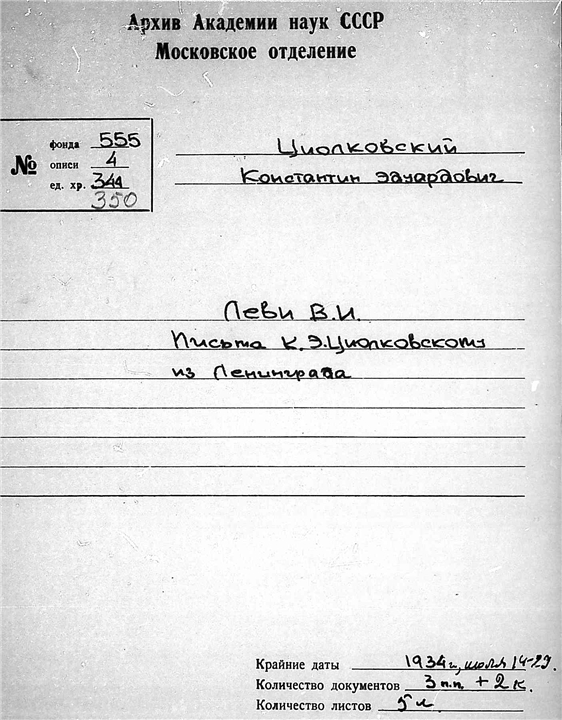 Архив Академии наук СССР
Московское отделение
№
фонда 555
описи 4
ед. хр. 344
350
Циолковский
Константин Эдуардович
Леви В.И.
Письма К.Э.Циолковскому
из Ленинграда
Крайние даты 1934г, июля 14-29.
Количество документов 3 п.п. + 2 к.
Количество листов 5 л